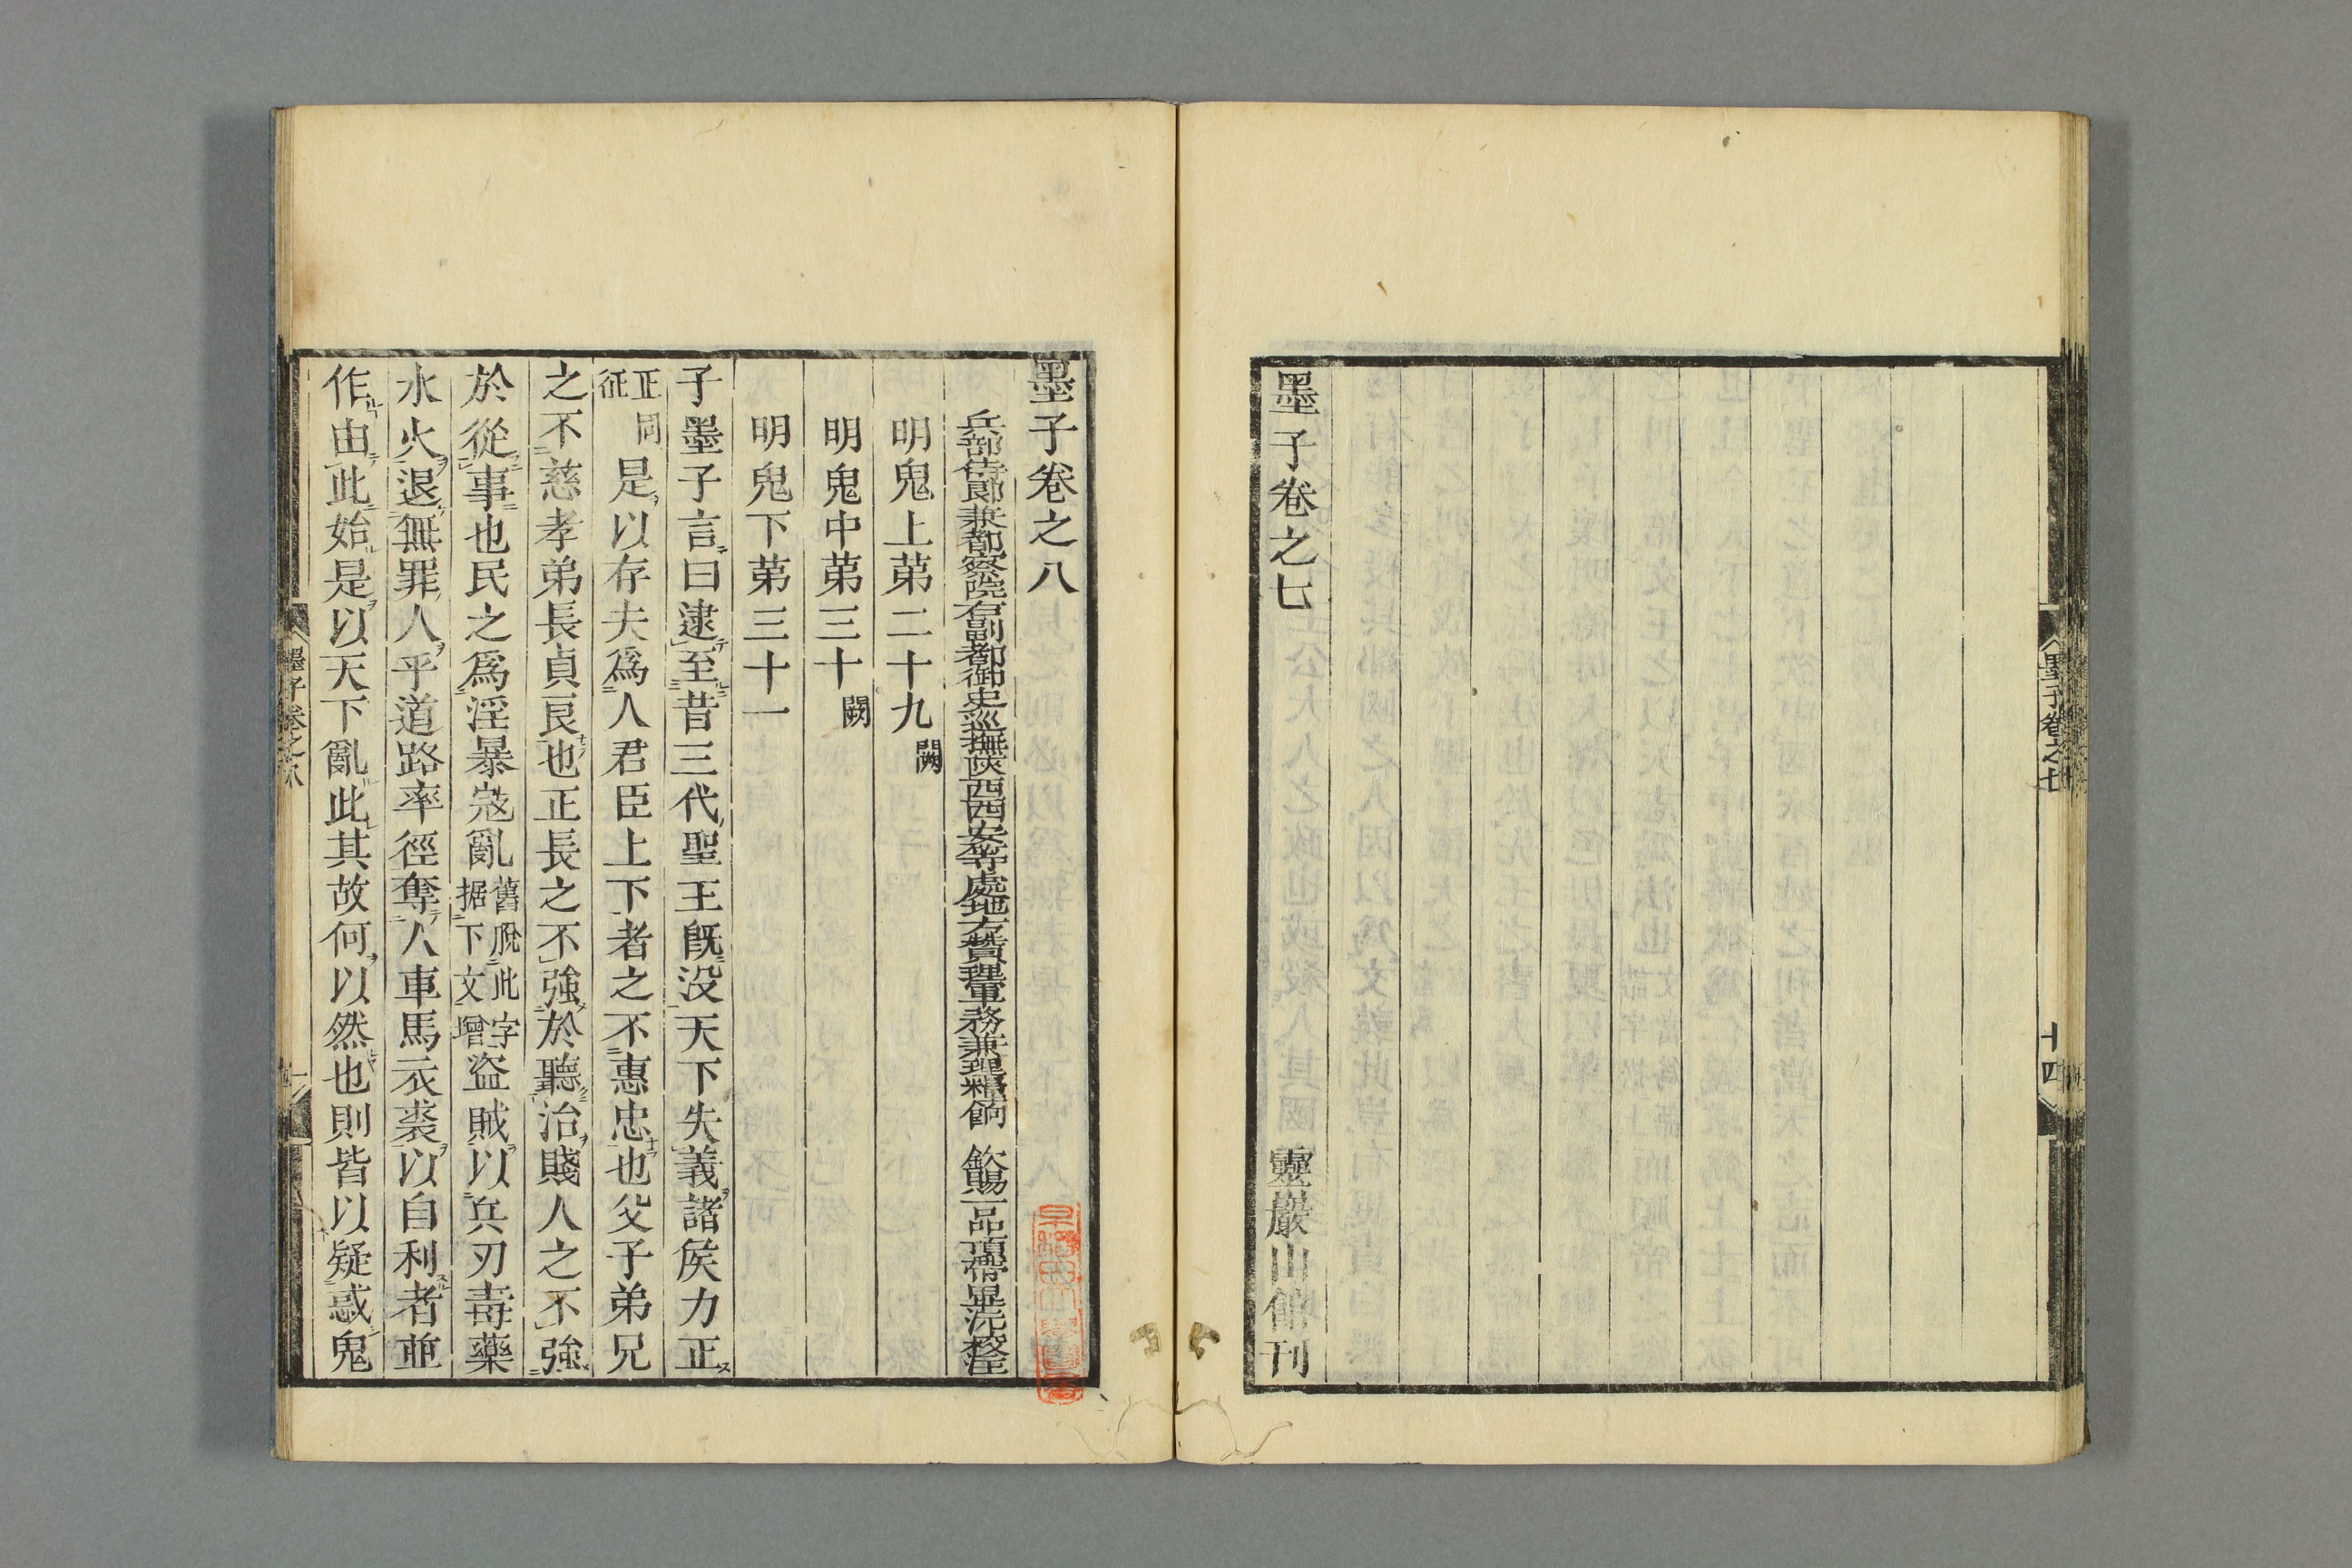 墨子卷之七
十四
墨子卷之七　靈巖山館刊
墨子卷之八
兵部侍郎兼都察院右副都御史巡撫陝西西安等處地方贊理軍務兼理糧餉　欽賜一品頂帶畢沅校注
明鬼上第二十九闕
明鬼中第三十闕
明鬼下第三十一
子墨子言曰逮至昔三代聖王旣没天下失義諸侯力正
正同征是以存夫爲人君臣上下者之不惠忠也父子弟兄
之不慈孝弟長貞良也正長之不強於聽治賤人之不強
於從事也民之爲淫暴寇亂舊脫此字据下文增盜賊以兵刃毒藥
水火退無罪人乎道路率徑奪人車馬衣裘以自利者並
作由此始是以天下亂此其故何以然也則皆以疑惑鬼
墨子卷之八
一